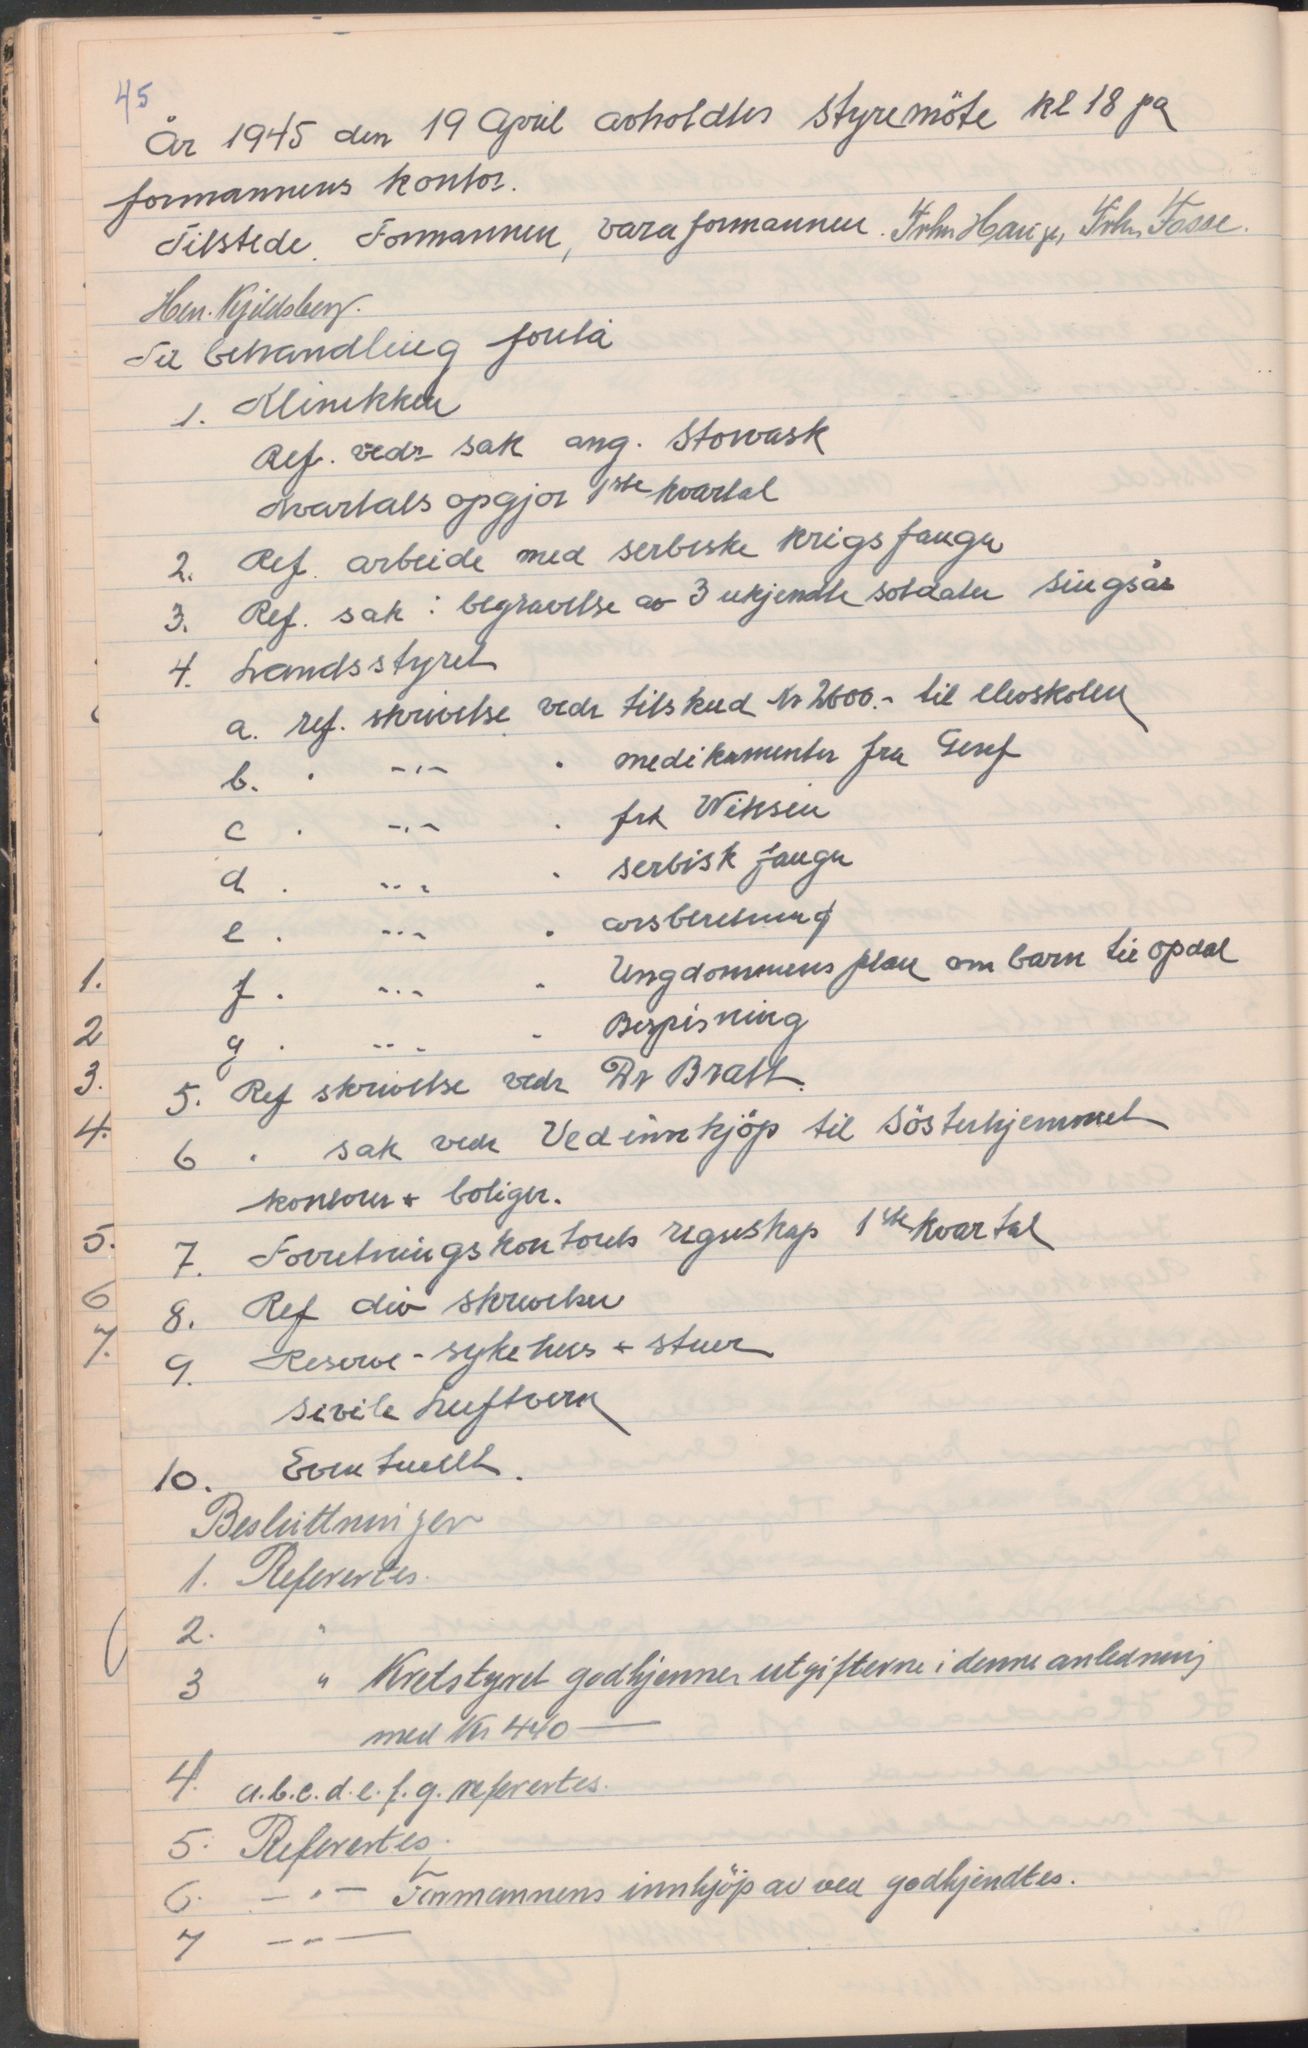 45
År 1945 den 19 April avholdtes styremöte kl 18 pa
formannens kontor.
Tilstede. Formannen, varaformannen. Frkn Hauge, Frkn Fosse.
Herr. Kjeldsberg.
Til behandling forelå
1. Klinikken
Ref. vedr sak ang. Storvask
Kvartals opgjør 1ste kvartal
2. Ref. arbeide med serbiske krigsfanger
3. Ref. sak: begravelse av 3 ukjendte soldater Singsås
4. Landsstyret
a. ref. skrivelse vedr tilskud Kr 2600.- til elevskolen
b. " -"- " medikamenter fra Genf
c . -"- . frk Wiksen
d . -"- . serbisk fanger
e . -"- . arsberetning
1.
f . -"- . Ungdommens plan om barn til Opdal
2
g . -"- . Bespisning
3.
5. Ref skrivelse vedr Dr Bratt.
4.
6 . sak vedr Vedinnkjöp til Sösterhjemmet
kontorer + boliger.
5.
7. Forretningskontorets regnskap 1ste kvartal
6
8. Ref div skrivelser
7.
9. Reserve-sykehus + stuer
sivile Luftvern
10. Eventuellt.
Besluttninger
1. Refereres.
2. "
3 " Kretstyret godkjenner utgifterne i denne anledning
med Kr 440 —
4. a.b.c.d.e.f.g. refereres.
5. Refereres.
6. -"- Formannens innkjöp av ved godkjendtes.
7 -"-